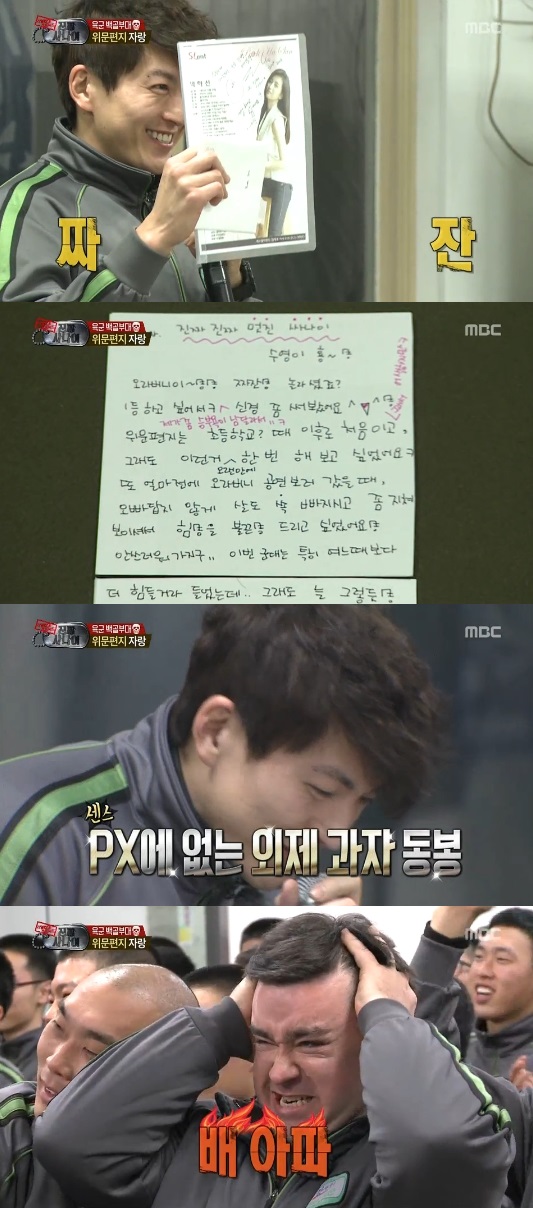 진짜 사나이
육군 백골부대
위문편지 자랑
MBC
짜 잔
진짜 사나이
육군 백골부대
위문편지 자랑
MBC
진짜 진짜 멋진 싸나이
수영이
오라버니이~
1등 하고 싶어서ㅋ 신경 좀 써봤어요 ^♥^
위문편지는 초등학교? 때 이후로 처음이고,
그래도 이런거 한 번 해 보고 싶었어요ㅋ
오랜만에
또 얼마전에 오라버니 공연보러 갔을 때,
오빠답지 않게 살도 쏙 빠지시고 좀 지쳐
보이셔서 힘 불끈 드리고 싶었어요
안쓰러워가지구,, 이번 군대는 특히 여느때보다
더 힘들거라 들었는데.. 그래도 늘 그렇듯
진짜 사나이
육군 백골부대
위문편지 자랑
MBC
센스
PX에 없는 외제 과자 동봉
진짜 사나이
육군 백골부대
위문편지 자랑
MBC
배 아파